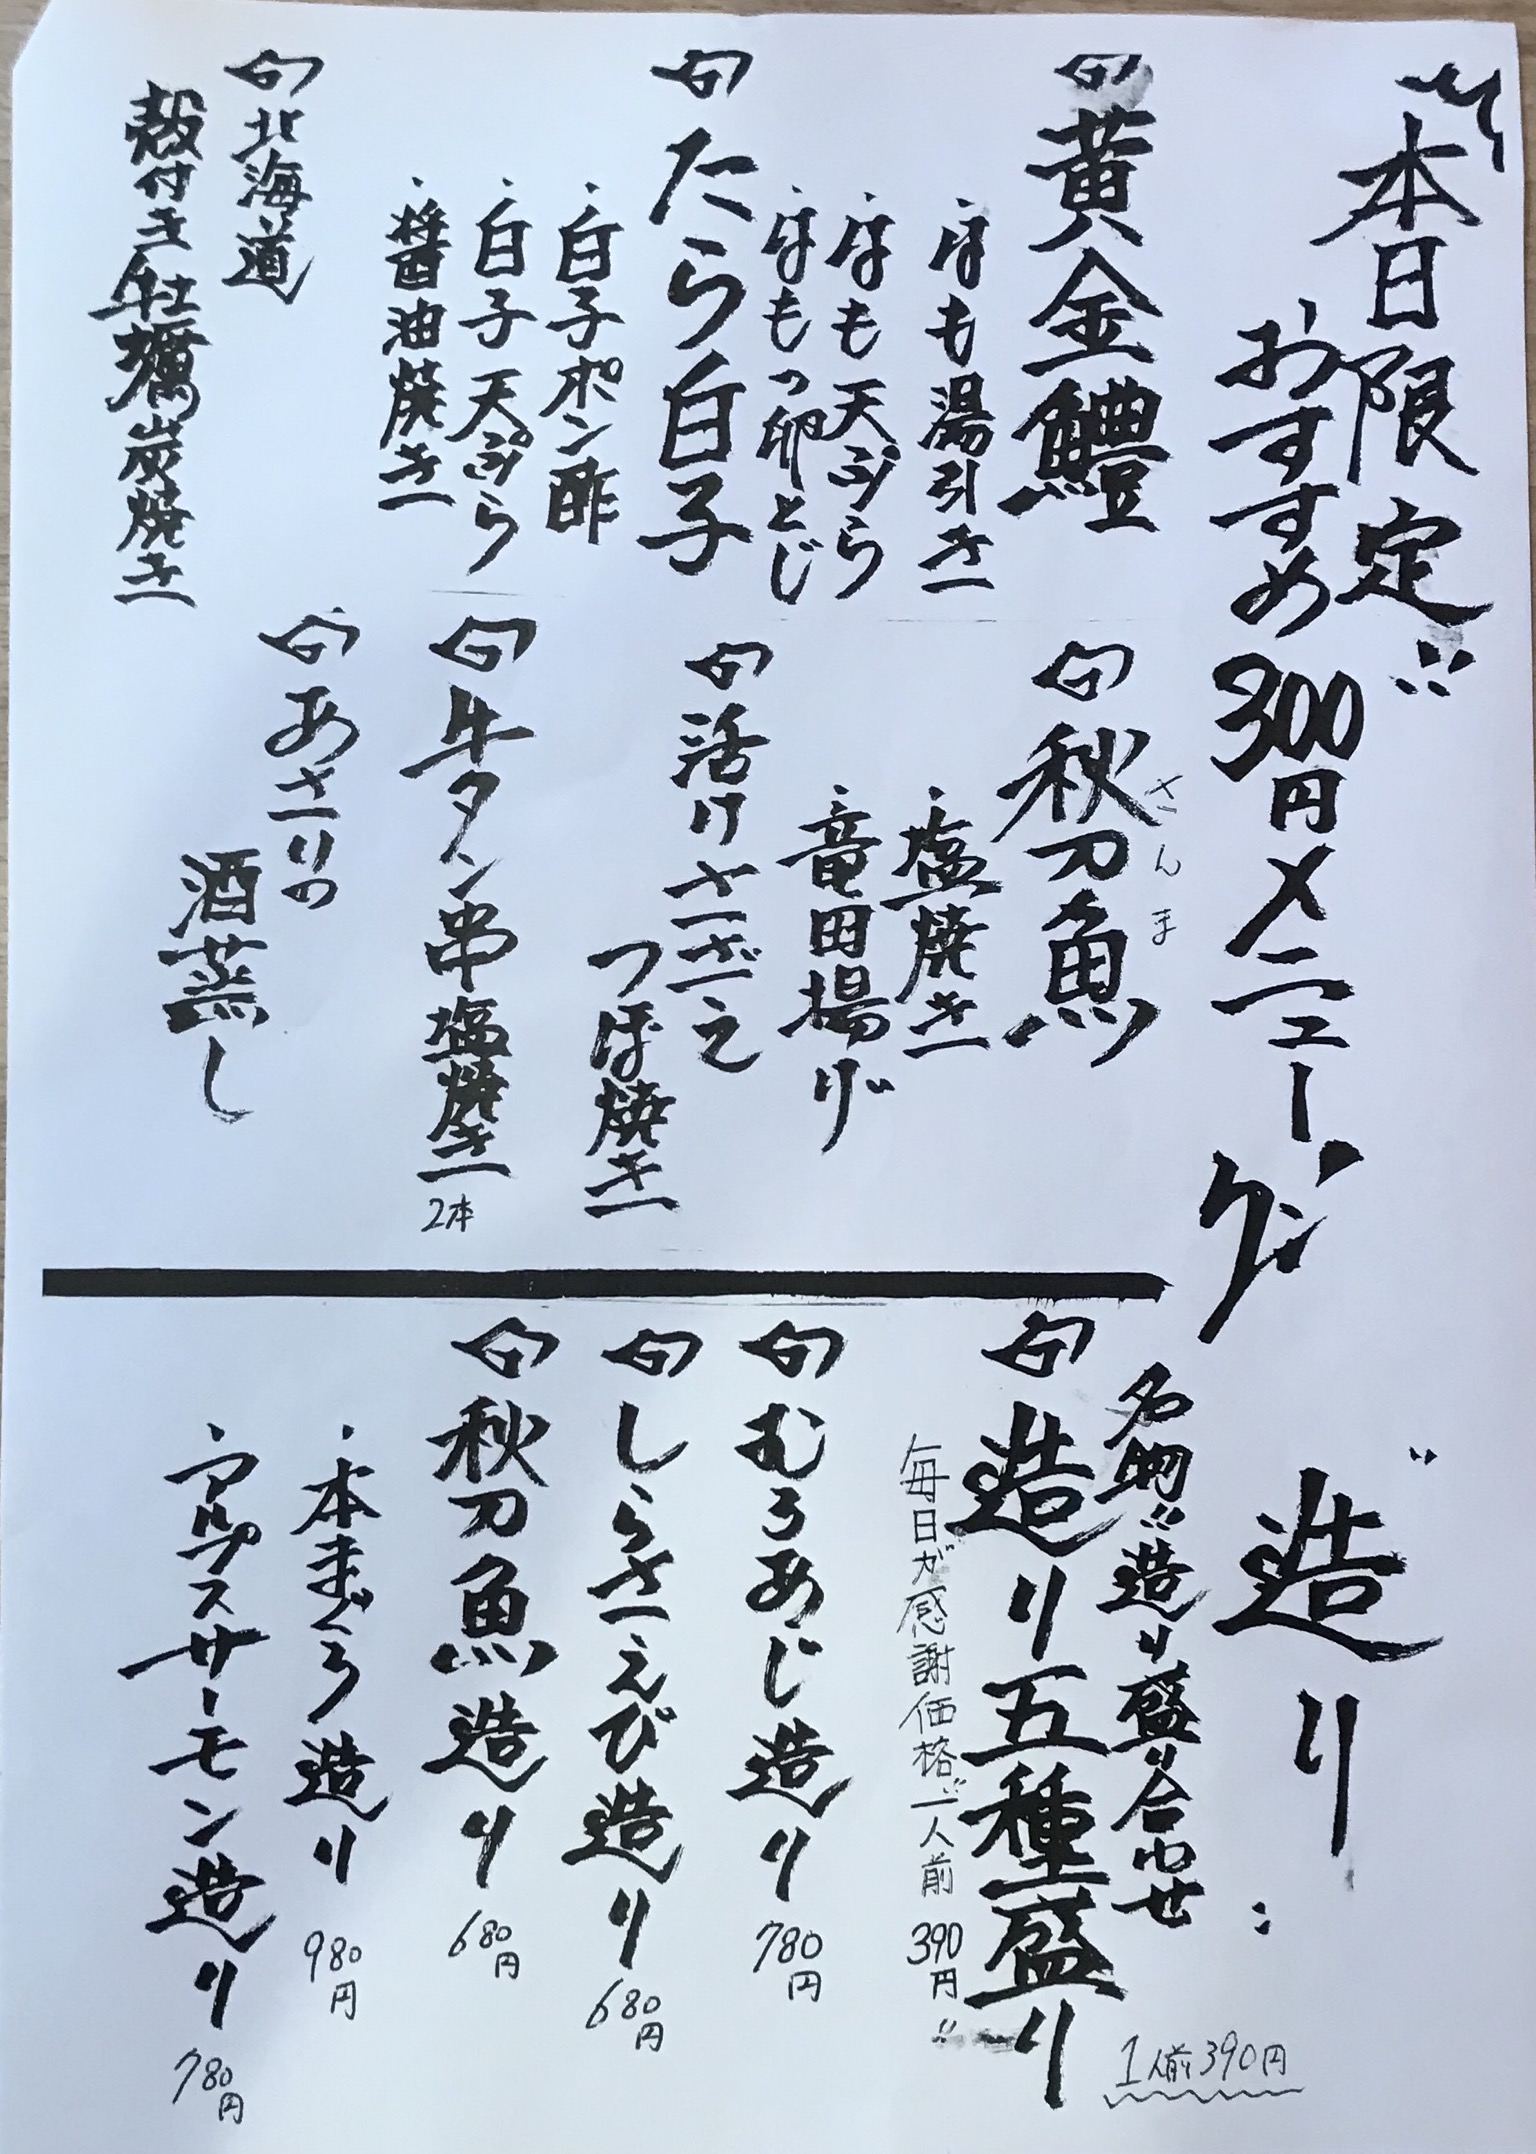 本日限定!!
おすすめ300円メニュー
黄金鱧
・はも湯引き
・はも天ぷら
・はもっ卵とじ
たら白子
・白子ポン酢
・白子天ぷら
・醤油焼き
北海道
殻付き牡蠣炭焼き
秋刀魚
さんま
・塩焼き
・竜田揚げ
活けさざえ
つぼ焼き
牛タン串塩焼き
2本
あさりの
酒蒸し
造り
名物!!造り盛り合わせ
1人前390円
造り五種盛り
毎日が感謝価格!!一人前390円!!
むろあじ造り
780円
しらさえび造り
680円
秋刀魚造り
680円
・本まぐろ造り
980円
・アルプスサーモン造り
780円